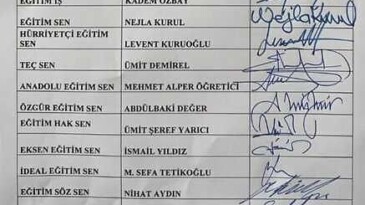 EĞİTİM İŞ KADEM ÖZBAY
EĞİTİM SEN NEJLA KURUL Nejla Kurul
HÜRRİYETÇİ EĞİTİM SEN LEVENT KURUOĞLU
TEÇ SEN ÜMİT DEMİREL
ANADOLU EĞİTİM SEN MEHMET ALPER ÖĞRETİCİ
ÖZGÜR EĞİTİM SEN ABDÜLBAKİ DEĞER
EĞİTİM HAK SEN ÜMİT ŞEREF YARICI
EKSEN EĞİTİM SEN İSMAİL YILDIZ
İDEAL EĞİTİM SEN M. SEFA TETİKOĞLU
EĞİTİM SÖZ SEN NİHAT AYDIN